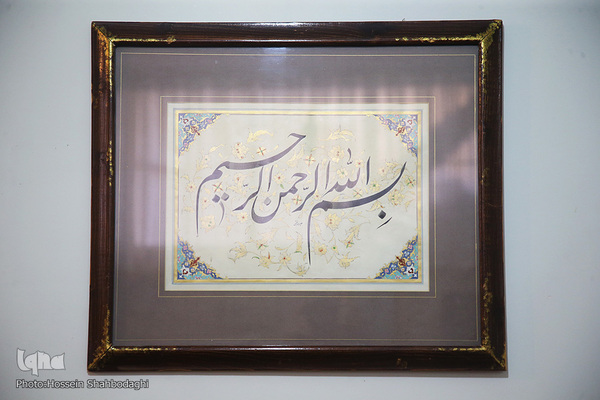 بسم الله الرحمن الرحیم
iqna
Photo:Hossein Shahbodaghi